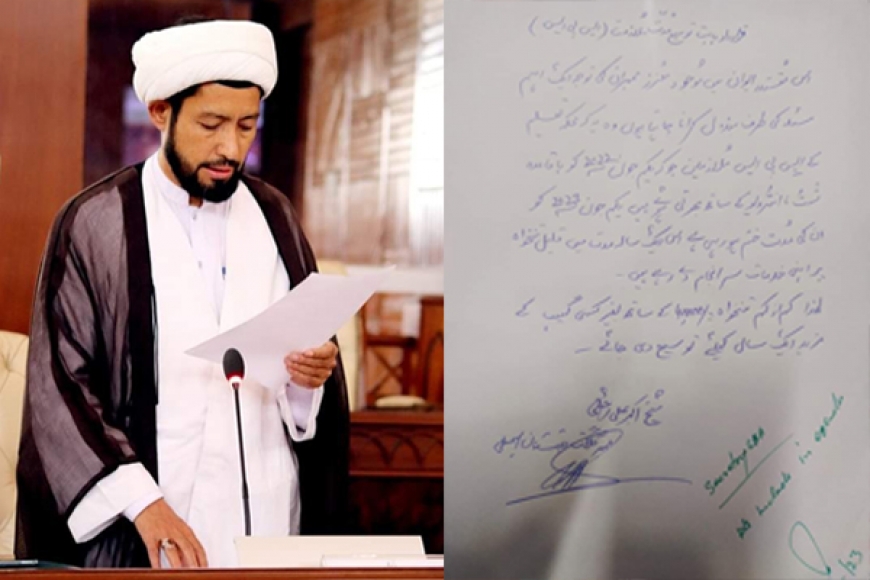 قرارداد بابت توسیع مدت ملازمت (ایس پی ایس)
اس مقتدر ایوان میں موجود معزز ممبران کا توجہ ایک اہم
مسئلہ کی طرف مبذول کرانا چاہتا ہوں وہ یہ کہ محکمہ تعلیم
کے ایس پی ایس ملازمین جو کہ یکم جون 2022 کو باقاعدہ
ٹسٹ، انٹرویو کے ساتھ بھرتی ہوئے ہیں یکم جون 2023 کو
ان کی مدت ختم ہو رہی ہے اس ایک سالہ مدت میں قلیل تنخواہ
پر اپنی خدمات سر انجام دے رہے ہیں۔
لہٰذا کم از کم تنخواہ کے ساتھ بغیر کسی گیپ کے
مزید ایک سال کیلئے توسیع دی جائے۔
شیخ اکبر علی رجائی
ممبر گلگت بلتستان اسمبلی
Secretary GBA
include in agenda
/23